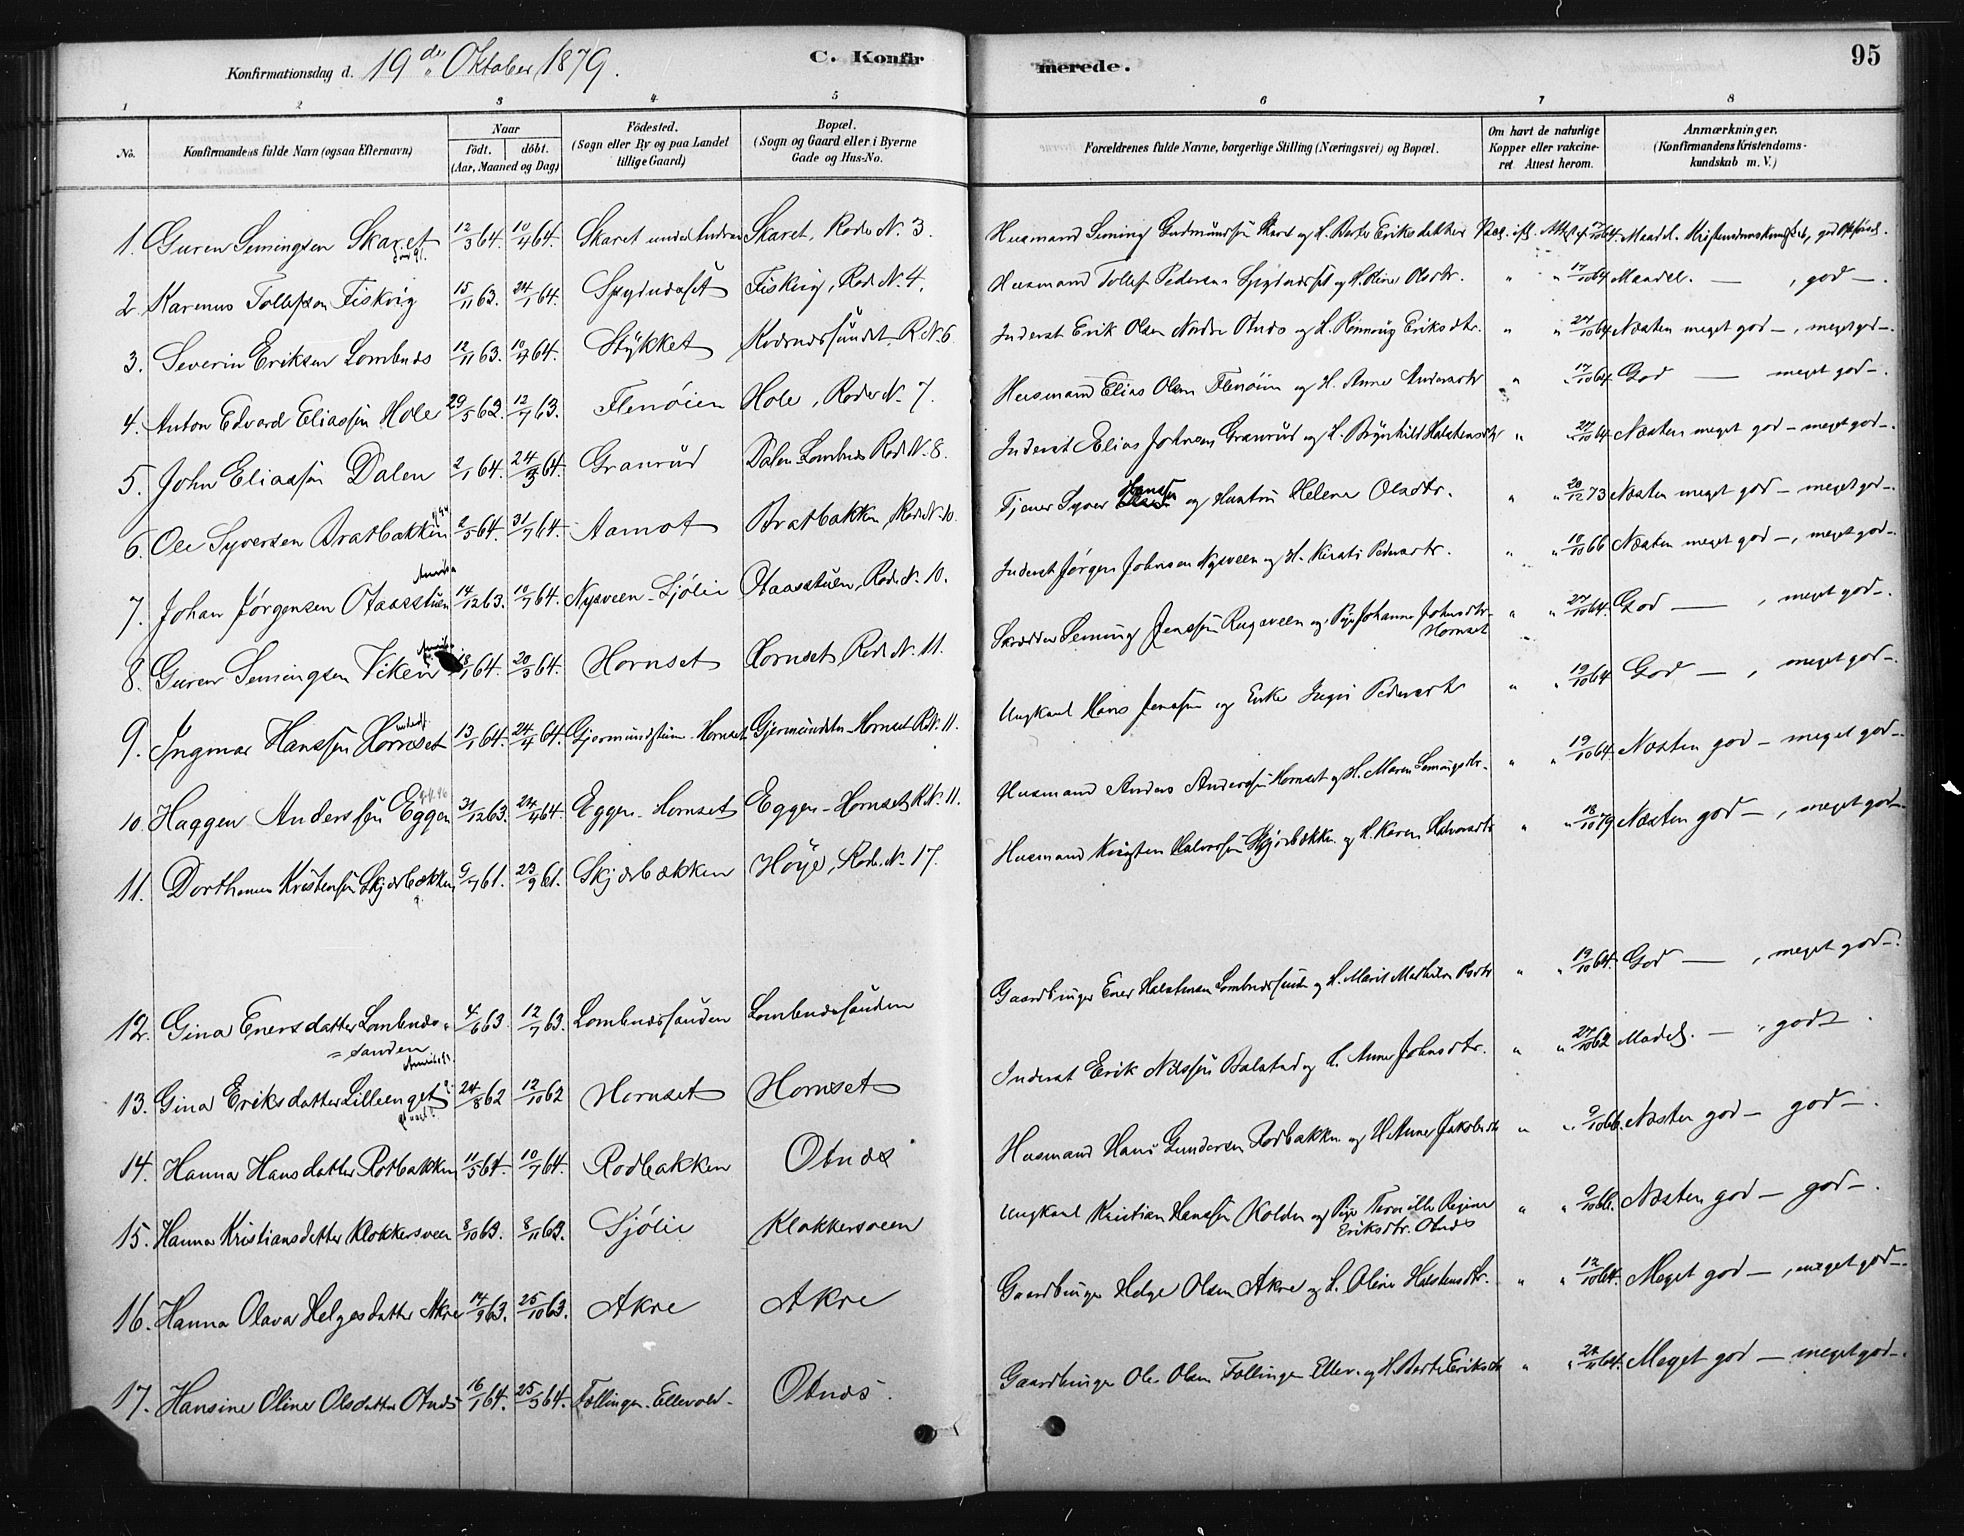 Konfirmationsdag d. 19de Oktober 1879. C. Konfirmerede. 95
1 2 3 4 5 6 7 8
No. Konfirmandens fulde Navn (ogsaa Efternavn) Naar født. døbt. (Aar, Maaned og Dag) Fødested. (Sogn eller By og paa Landet tillige Gaard) Bopæl. (Sogn og Gaard eller i Byerne Gade og Hus-No. Forældrenes fulde Navne, borgerlige Stilling (Næringsvei) og Bopæl. Om havt de naturlige Kopper eller vakcineret Attest herom. Anmærkninger. (Konfirmandens Kristendomskundskab m. V.)
1. Guren Semingsen Skaret 12/3 64. 10/4 64. Skaret under Skaret, Rode N. 3. Husmand Seming Gudmundsen Skaret og H. Berte Eriksdatter 64. Maadel. Kristendomskundskab, god
2. Karenus Tollefsen Fiskvig 15/11 63. 24/1 64. Fiskvig, Rode N. 4. Husmand Tollef Pedersen og H. Oline Olsdtr. " " 17/10 64 Maadel. — , god —.
3. Severin Eriksen Lombnæs 12/11 63. 10/4 64. Stykket R. N. 6 Inderst Erik Olsen Nordre Otnæs og H. Rønnaug Eriksdtr. " " 27/10 64 Næsten meget god —, meget god —.
4. Anton Edvard Eliassen Hole 29/5 63. 12/7 63. Flenøien Hole, Rode N. 7. Husmand Elias Olsen Flenøien og H. Anne Andersdtr " " 17/10 64. God — meget god —.
5. John Eliassen Dalen 2/1 64. 24/3 64. Granrud Dalen Lombnæs Rode N. 8. Inderst Elias Johnsen Granrud og H. Brynhild Halstensdtr " " 27/10 64 Næsten meget god — meget god —.
6. Ole Syversen Bratbakken 2/5 64. 31/7 64. Aamot Bratbakken, Rode N. 10. Tjener Syver Hanssen og Hustru Helene Olsdtr. " " 20/12 73 Næsten meget god — meget god —.
7. Johan Jørgensen Otnæsstuen 14/12 63. 10/7 64. Nysveen - Sjølie Otnæsstuen, Rode N. 10. Inderst Jørgen Johnsen Nysveen og H. Kirsti Pedersdtr. " " 10/10 66 Næsten meget god —, meget god —.
8. Guren Semingsen Viken 18/1 64. 20/3 64. Hornset Hornset, Rode N. 11. Skrædder Seming Jenssen Rugsveen og Pige Johanne Johnsdtr Hornset " " 27/10 64. God — , meget god —.
9. Ingmar Hanssen Hornset 13/1 64. 24/4 64. Gjermundstuen - Hornset Gjermundstu - Hornset R. N. 11. Ungkarl Hans Jenssen og Enke Inger Pedersdtr " " 19/10 64 God —, meget god —.
10. Haagen Anderssen Eggen 31/12 63. 24/4 64. Eggen - Hornset Eggen - Hornset R. N. 11. Husmand Anders Anderssen Hornset og H. Maren Semingsdtr. " " 19/10 64. Næsten god — meget god —.
11. Dorthenus Kristensen Skjærbækken 9/7 61. 29/9 61. Skjærbækken Høye, Rode N. 17. Husmand Kristen Halvorsen Skjærbækken og H. Karen Halvorsdtr " " 18/10 79 Næsten god —, meget god —.
12. Gina Enersdatter Lombnæs- = sanden 4/6 63. 12/7 63. Lombnæssanden Lombnæssanden Gaardbruger Ener Halstensen Lombnæssanden og H. Marit Mathilde " " 19/10 64. God — , meget god —.
13. Gina Eriksdatter Lilleenget 24/8 62 12/10 62 Hornset Hornset Inderst Erik Nilssen Balstad og H. Anne Johnsdtr. " " 27/10 62 Madel. — , godt.
14. Hanna Hansdatter Rotbakken 11/5 64. 10/7 64. Rodbakken Otnæs Husmand Hans Gundersen Rodbakken og H. Anne Jakobsdtr " " 9/10 66. Næsten god — god —.
15. Hanna Kristiansdatter Klokkersveen 8/10 63. 8/11 63. Sjølie Klokkersveen Ungkarl Kristian Hanssen Kolden og Pige Eriksdtr. Otnæs " " 9/10 66. Næsten god — god —.
16. Hanna Olava Helgesdatter Akre 14/9 63. 25/10 63. Akre Akre Gaardbruger Helge Olsen Akre og H. Oline Halstensdtr. " " 12/10 64. Meget god —, meget god —.
17. Hansine Oline Olsdatter Otnæs 16/1 64. 25/3 64. Follingen - Ellevold - Otnæs. Gaardbruger Ole Olsen Follingen Ellev. og H. Berte Eriksdtr " " Meget god — meget god —.